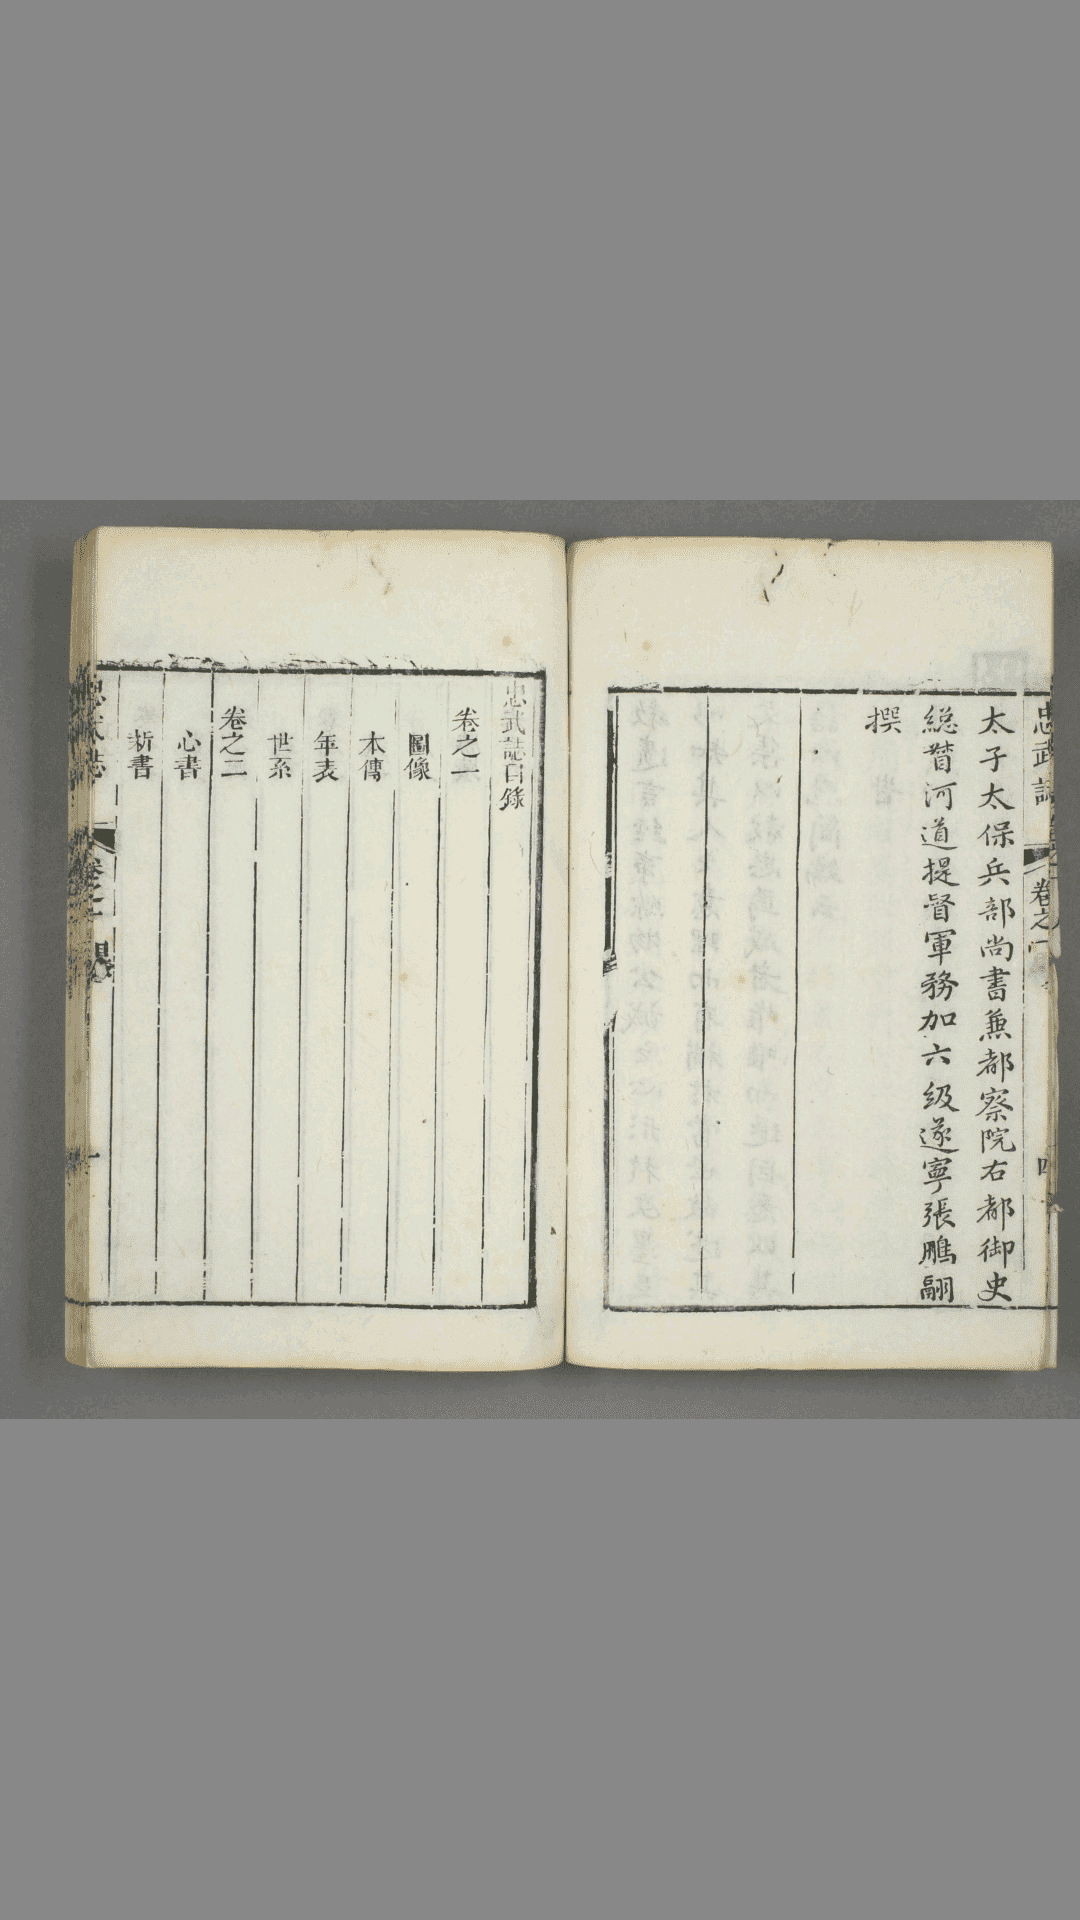 忠武誌
卷之一
四
太子太保兵部尚書兼都察院右都御史
総督河道提督軍務加六級遂寧張鵬翮
撰
忠武誌目錄
卷之一
圖像
本傳
年表
世系
卷之二
心書
新書
忠武誌
卷之一
目
一